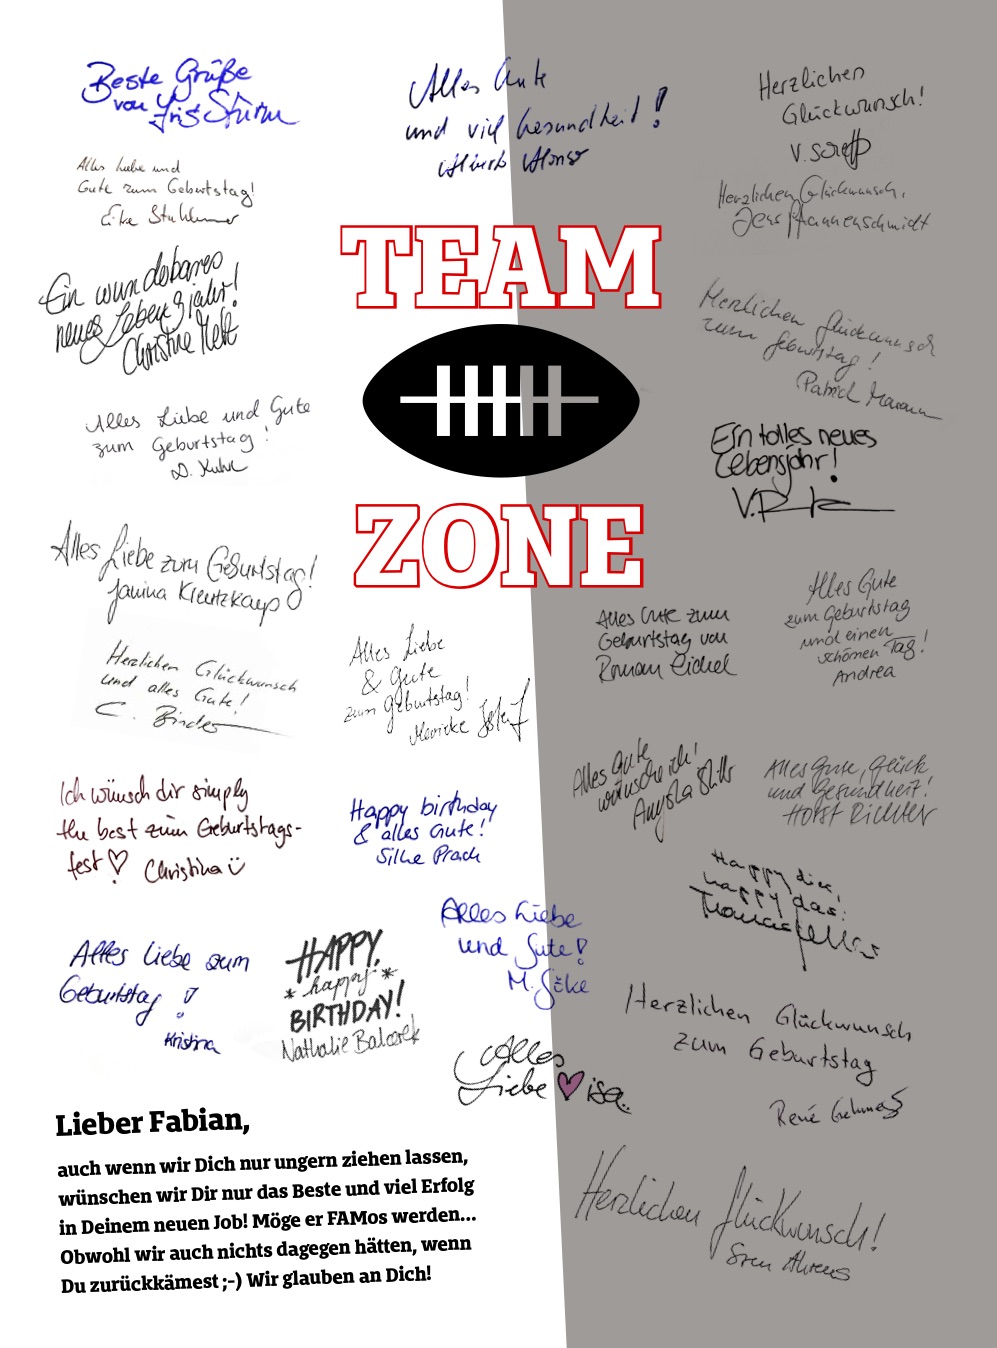 Beste Grüße
von Iris Sturm
Alles Gute
und viel Gesundheit!
Alberto Alonso
Herzlichen
Glückwunsch!
V.
Alles Liebe und
Gute zum Geburtstag!
Herzlichen Glückwunsch,
Jens Pfannenschmidt
Ein wunderbares
neues Lebensjahr!
Christine
TEAM
ZONE
Herzlichen Glückwunsch
zum Geburtstag!
Patrick
Alles Liebe und Gute
zum Geburtstag!
D.
Ein tolles neues
Lebensjahr!
V.
Alles Liebe zum Geburtstag!
Janina Kreutzkamp
Alles Gute zum
Geburtstag von
Roman Eichel
Alles Gute
zum Geburtstag
und einen
schönen Tag!
Andrea
Herzlichen Glückwunsch
und alles Gute!
C. Binder
Alles Liebe
& Gute
zum Geburtstag!
Mareike
Ich wünsch dir simply
the best zum Geburtstags-
fest ♡ Christina
Happy birthday
& alles Gute!
Silke Prach
Alles Gute
wünsche ich!
Alles Gute, Glück
und Gesundheit!
Horst Richter
Happy dies,
happy das.
Alles Liebe zum
Geburtstag!
Kristina
HAPPY,
* happy *
BIRTHDAY!
Nathalie
Alles Liebe
und Gute!
M.
Herzlichen Glückwunsch
zum Geburtstag
René
Alles
Liebe ♥ isa
Herzlichen Glückwunsch!
Sven Ahrens
Lieber Fabian,
auch wenn wir Dich nur ungern ziehen lassen,
wünschen wir Dir nur das Beste und viel Erfolg
in Deinem neuen Job! Möge er FAMos werden...
Obwohl wir auch nichts dagegen hätten, wenn
Du zurückkämest ;-) Wir glauben an Dich!